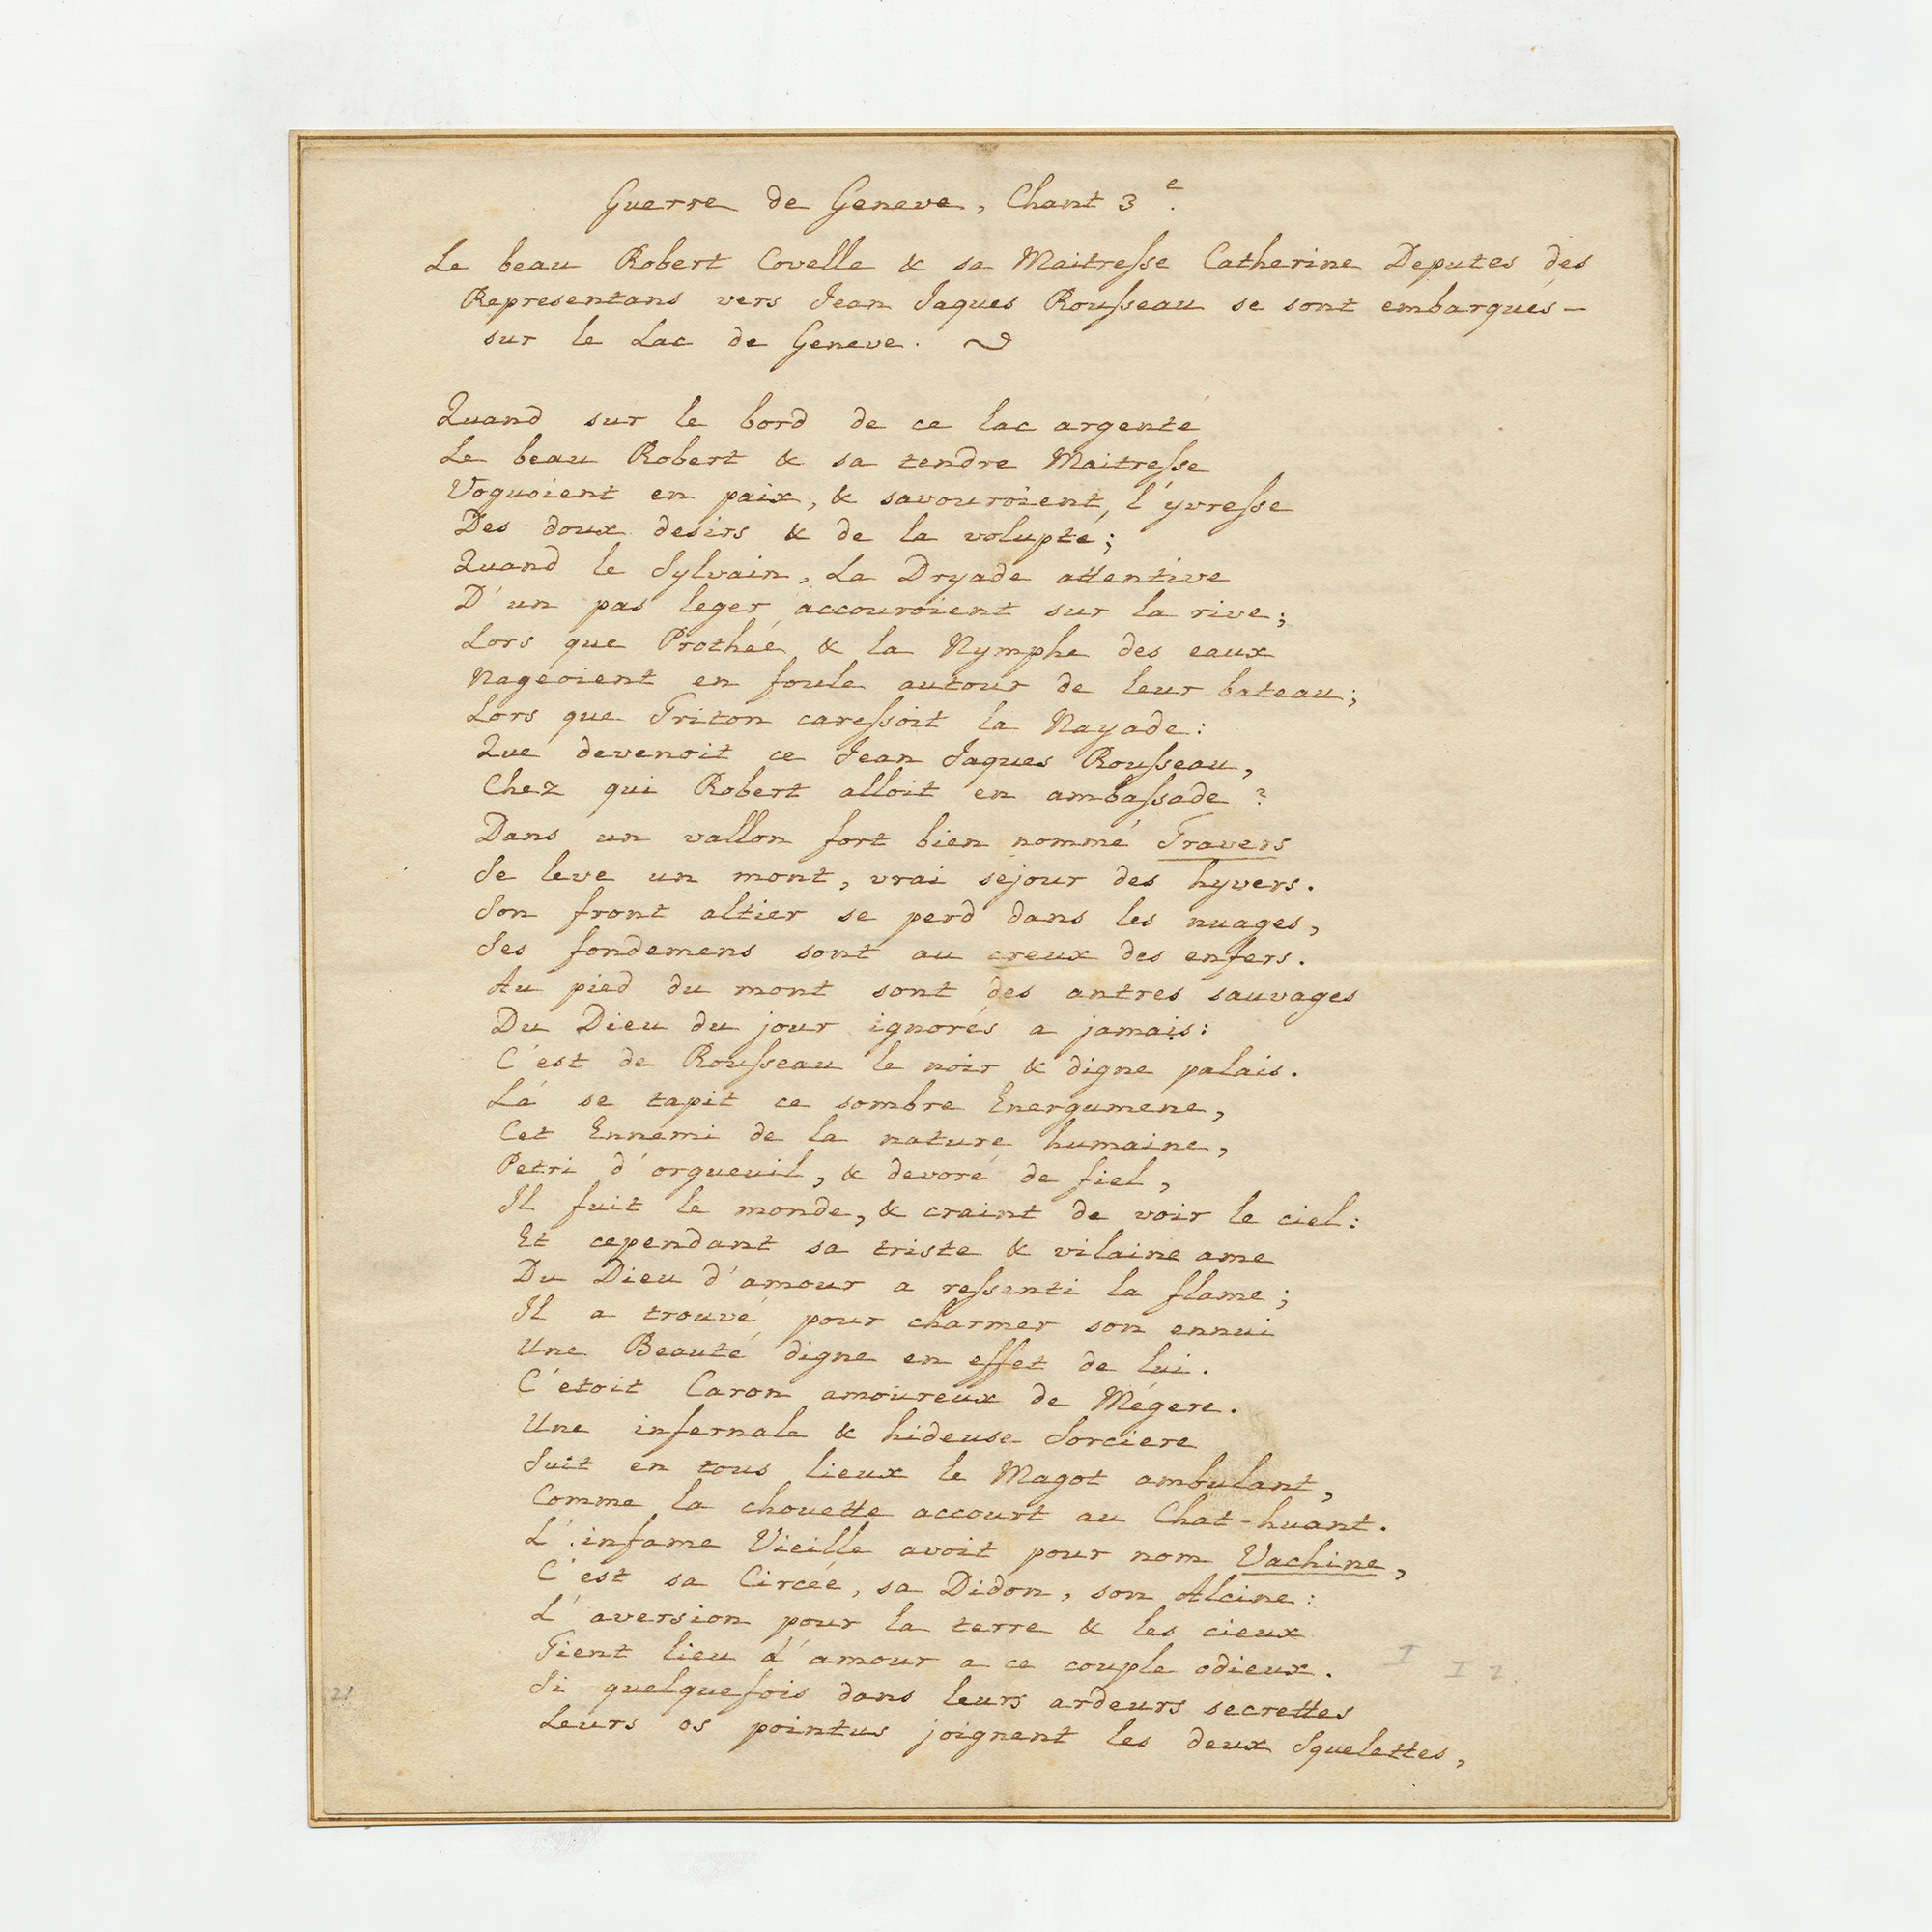 Guerre de Geneve, Chant 3e.
Le beau Robert Covelle & sa Maitresse Catherine Deputés des
Representans vers Jean Jaques Rousseau se sont embarqués –
sur le Lac de Geneve.
Quand sur le bord de ce lac argenté
Le beau Robert & sa tendre Maitresse
Voguoient en paix, & savouroient l'yvresse
Des doux desirs & de la volupté;
Quand le Sylvain, La Dryade attentive
D'un pas leger accouroient sur la rive;
Lors que Prothée & la Nymphe des eaux
Nageoient en foule autour de leur bateau;
Lors que Triton caressoit la Nayade:
Que devenoit ce Jean Jaques Rousseau,
Chez qui Robert alloit en ambassade?
Dans un vallon fort bien nommé Travers
Se leve un mont, vrai sejour des hyvers.
Son front altier se perd dans les nuages,
Ses fondemens sont au creux des enfers.
Au pied du mont sont des antres sauvages
Du Dieu du jour ignorés a jamais:
C'est de Rousseau le noir & digne palais.
Là se tapit ce sombre Energumene,
Cet Ennemi de la nature humaine,
Petri d'orgueuil, & devoré de fiel,
Il fuit le monde, & craint de voir le ciel:
Et cependant sa triste & vilaine ame
Du Dieu d'amour a ressenti la flame;
Il a trouvé pour charmer son ennui
Une Beauté digne en effet de lui.
C'etoit Caron amoureux de Mégere.
Une infernale & hideuse Sorciere
Suit en tous lieux le Magot ambulant,
Comme la chouette accourt au Chat-huant.
L'infame Vieille avoit pour nom Vachine,
C'est sa Circée, sa Didon, son Alcine:
L'aversion pour la terre & les cieux
Tient lieu d'amour a ce couple odieux.
Si quelquefois dans leurs ardeurs secrettes
Leurs os pointus joignent les deux Squelettes,
21
I I 2